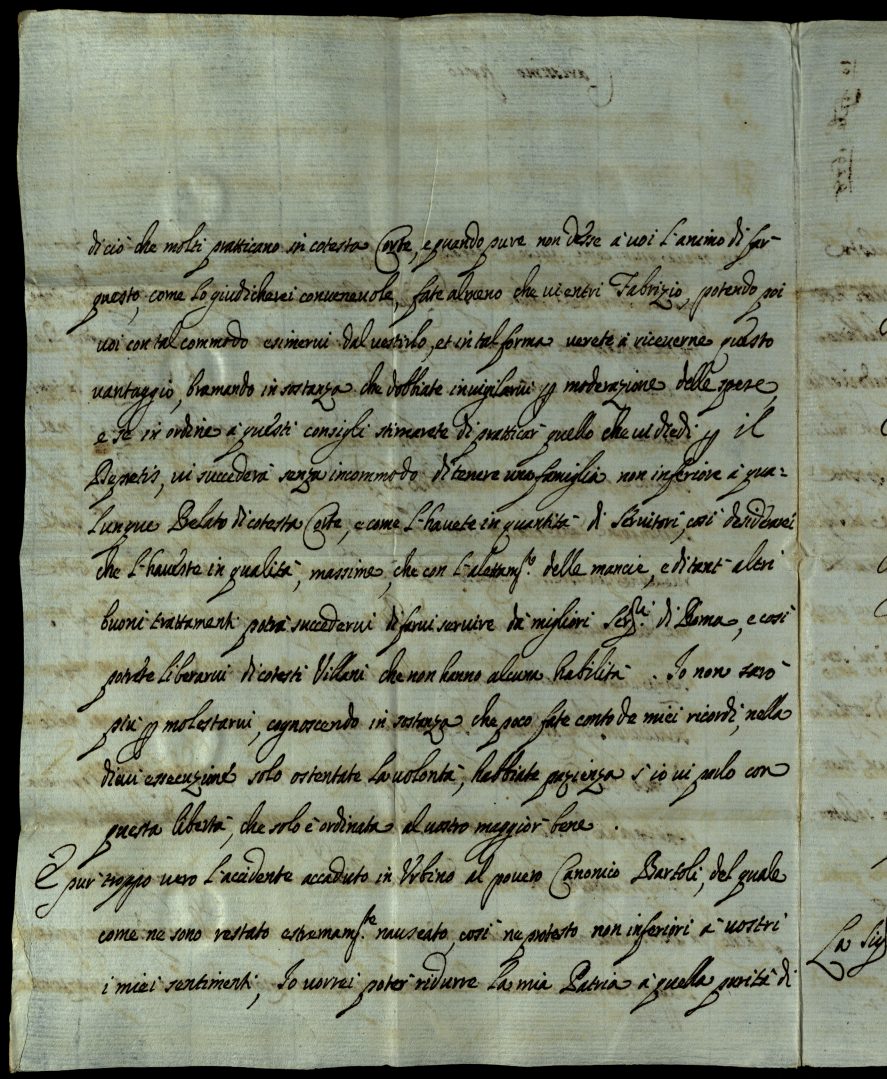 di ciò che molti pratticano in cotesta Corte, e quando pure non desse à voi l'animo di far
questo, come lo giudicherei convenevole, fate almeno che vi entri Fabrizio, potendo poi
voi con tal commodo esimervi dal vestirlo, et in tal forma verete à riceverne questo
vantaggio, bramando in sostanza che dobbiate invigilarvi p moderazione delle spese,
e se in ordine à questi consigli stimarete di pratticar quello che vi diedi p il
Depretis, vi succederà senza incommodo di tenere una famiglia non inferiore à qua=
lunque Prelato di cotesta Corte, e come l'havete in quantità di Servitori, così desiderarei
che l'haveste in qualità, massime, che con l'alettam.to delle mancie, e di tant'altri
buoni trattamenti potrà succedervi di farvi servire da migliori Ser.ri di Roma, e così
potrete liberarvi di cotesti Villani che non hanno alcuna habilità. Io non sarò
più p molestarvi, cognoscendo in sostanza che poco fate conto de miei ricordi, nella
di cui essecuzione solo ostentate la volontà, habbiate pazienza s'io vi parlo con
questa libertà, che solo è ordinata al vostro maggior bene.
È pur troppo vero l'accidente accaduto in Urbino al povero Canonico Bartoli, del quale
come ne sono restato estremam.te nauseato, così ne protesto non inferiori à vostri
i miei sentimenti, Io vorrei poter ridurre la mia Patria à quella purità di
La Sig